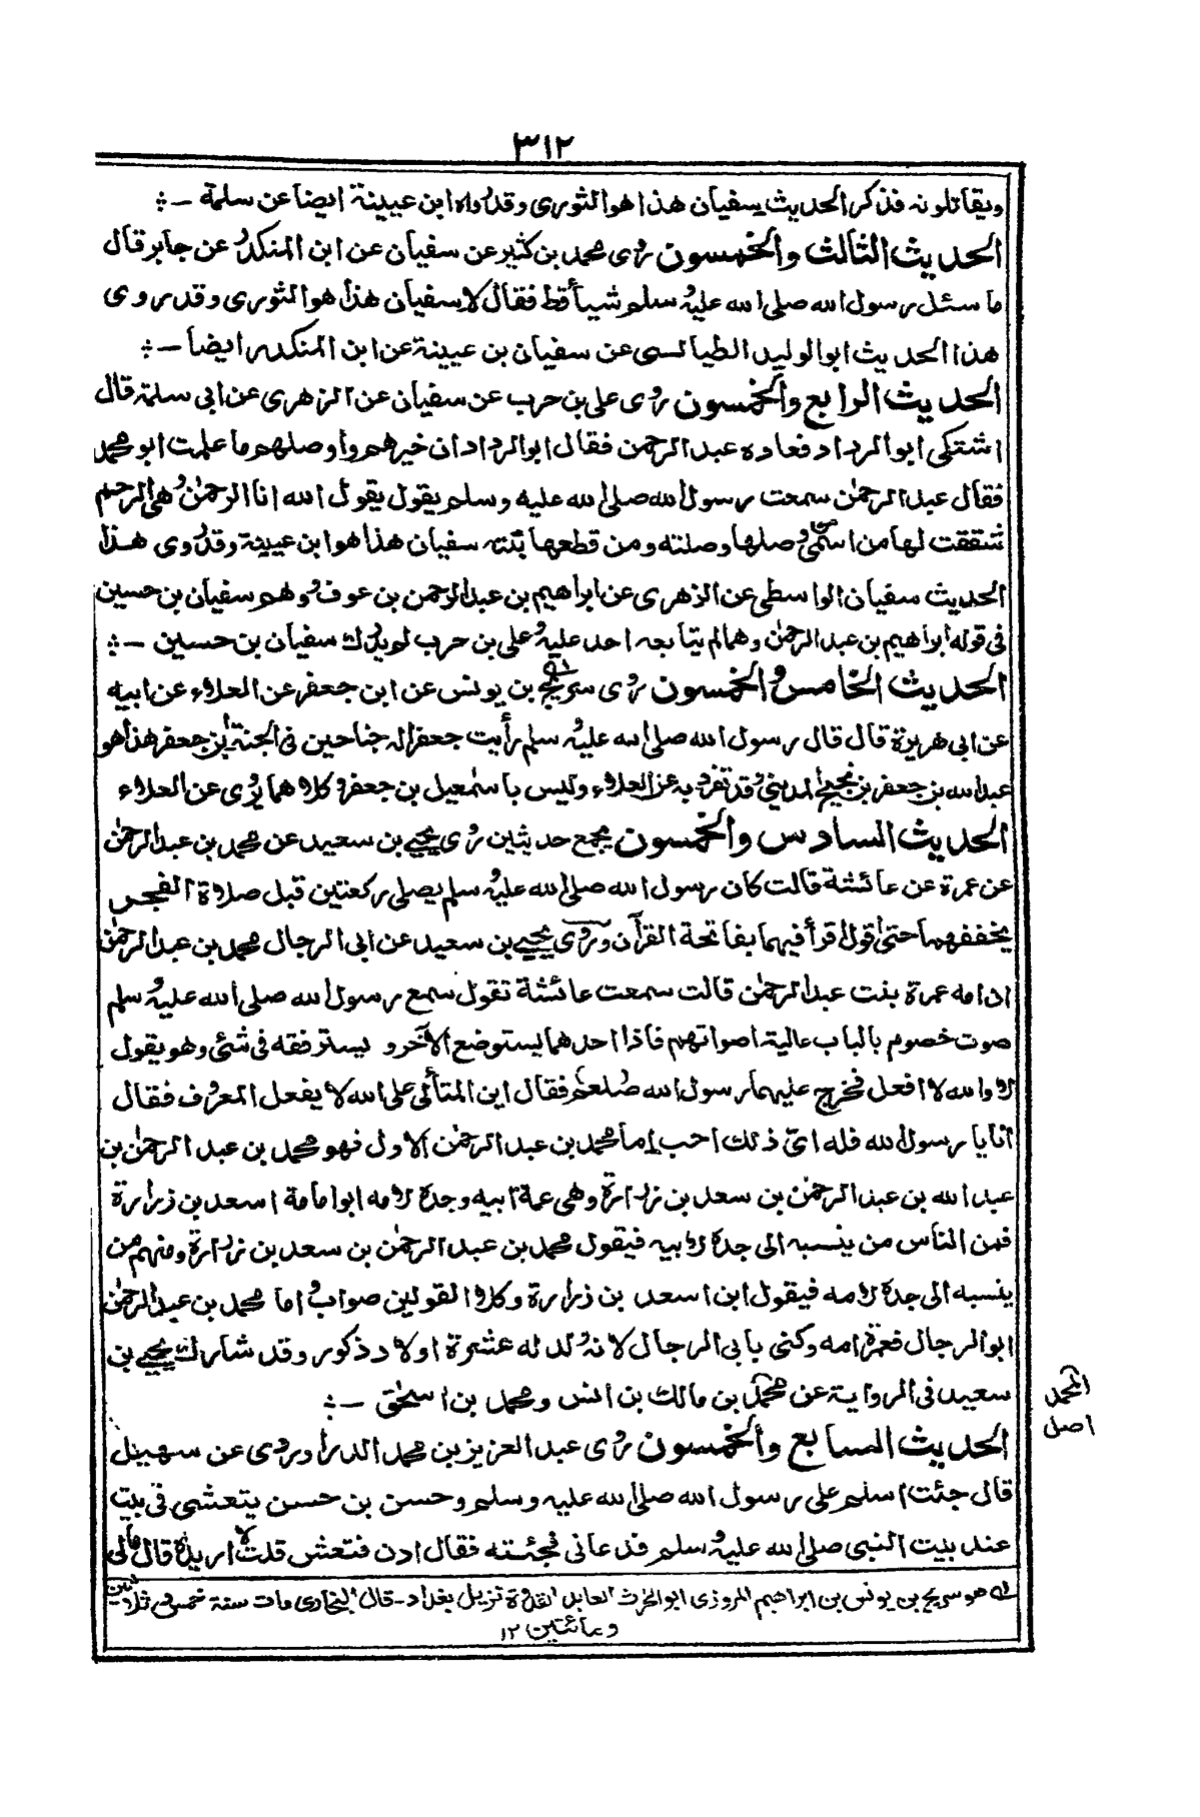 ٣١٢
ويقاتلونه فذكر الحديث سفيان هذا هو الثوري وقد رواه ابن عيينة ايضا عن سلمة -:
الحديث الثالث والخمسون روى محمد بن كثير عن سفيان عن ابن المنكدر عن جابر قال
ما سئل رسول الله صلى الله عليه وسلم شيأ قط فقال لا سفيان هذا هو الثوري وقد روى
هذا الحديث ابو الوليد الطيالسي عن سفيان بن عيينة عن ابن المنكدر ايضا -:
الحديث الرابع والخمسون روى على بن حرب عن سفيان عن الزهرى عن ابى سلمة قال
اشتكى ابو الرداد فعاده عبد الرحمن فقال ابو الرداد ان خيرهم واوصلهم ما علمت ابو محمد
فقال عبد الرحمٰن سمعت رسول الله صلى الله عليه وسلم يقول يقول الله انا الرحمٰن وهى الرحم
شققت لها من اسمى من وصلها وصلته ومن قطعها بتته سفيان هذا هو ابن عيينة وقد روى هذا
الحديث سفيان الواسطى عن الزهرى عن ابراهيم بن عبد الرحمن بن عوف ووهم سفيان بن حسين
فى قوله ابراهيم بن عبد الرحمٰن وهما لم يتابعه احد عليه وعلى بن حرب لم يدرك سفيان بن حسين -:
الحديث الخامس والخمسون روى سريج بن يونس عن ابن جعفر عن العلاء عن ابيه
عن ابى هريرة قال قال رسول الله صلى الله عليه وسلم رأيت جعفرا له جناحين فى الجنة ابن جعفر هذا هو
عبد الله بن جعفر بن نجيح المدينى وقد تفرد به عن العلاء وليس باسمٰعيل بن جعفر وكلاهما يروى عن العلاء
الحديث السادس والخمسون يجمع حديثين روى يحيى بن سعيد عن محمد بن عبد الرحمٰن
عن عمرة عن عائشة قالت كان رسول الله صلى الله عليه وسلم يصلى ركعتين قبل صلاة الفجر
يخففهما حتى اقول اقرأ فيهما بفاتحة القرآن وروى يحيى بن سعيد عن ابى الرجال محمد بن عبد الرحمٰن
ان امه عمرة بنت عبد الرحمٰن قالت سمعت عائشة تقول سمع رسول الله صلى الله عليه وسلم
صوت خصوم بالباب عالية اصواتهم فاذا احدهما يستوضع الآخر و يسترفقه فى شئ وهو يقول
لا والله لا افعل فخرج عليهما رسول الله صلعم فقال اين المتألى على الله لا يفعل المعروف فقال
انا يا رسول الله فله اى ذلك احب اما محمد بن عبد الرحمٰن الاول فهو محمد بن عبد الرحمٰن بن
عبد الله بن عبد الرحمٰن بن سعد بن زرارة وهى عمة ابيه وجده لامه ابو امامة اسعد بن زرارة
فمن الناس من ينسبه الى جده لابيه فيقول محمد بن عبد الرحمٰن بن سعد بن زرارة ومنهم من
ينسبه الى جده لامه فيقول ابن اسعد بن زرارة وكلا القولين صواب واما محمد بن عبد الرحمٰن
ابو الرجال فعمرة امه وكنى بابى الرجال لانه ولد له عشرة اولاد ذكور وقد شارك يحيى بن
سعيد فى الرواية عن محمد بن مالك بن انس ومحمد بن اسحٰق -:
المحمد
اصل
الحديث السابع والخمسون روى عبد العزيز بن محمد الدراوردى عن سهيل
قال جئت اسلم على رسول الله صلى الله عليه وسلم وحسن بن حسن يتعشى فى بيت
عند بيت النبى صلى الله عليه وسلم فدعانى فجئته فقال ادن فتعش قلت لا اريده قال مالى
له هو سريج بن يونس بن ابراهيم المروزى ابو الحرث العابد القدوة نزيل بغداد - قال البخارى مات سنة خمس وثلاثين
ومائتين ١٢